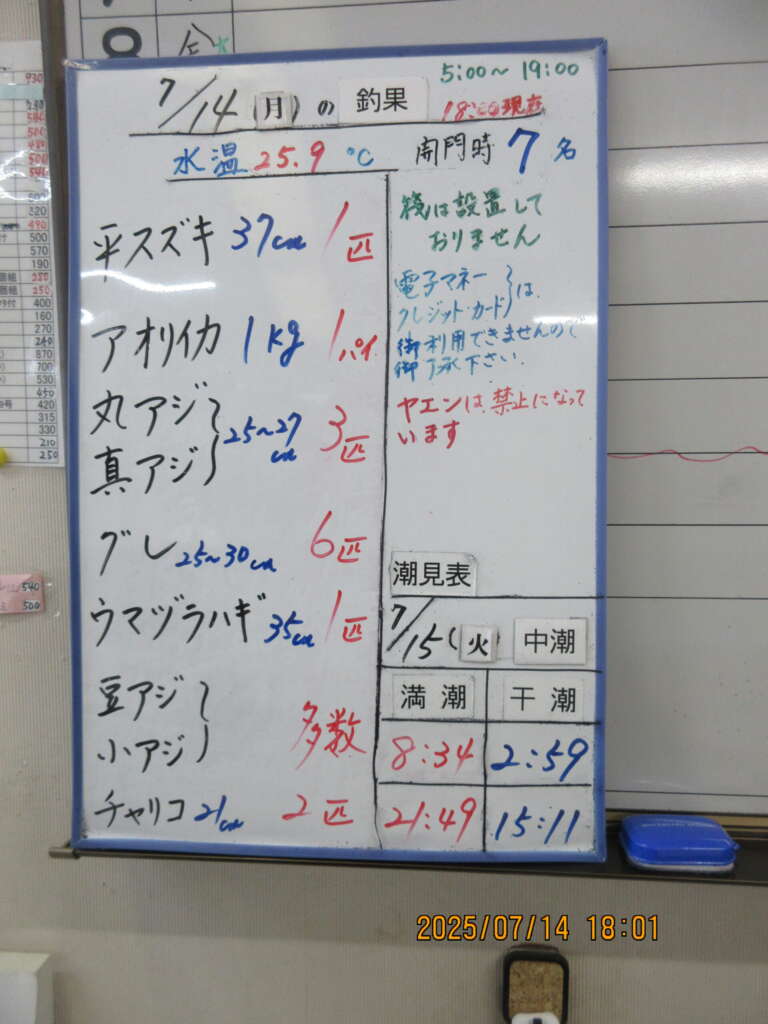 5:00～19:00
7/14(月)の釣果
18:00現在
水温 25.9 ℃
開門時 7名
平スズキ 37cm 1匹
アオリイカ 1kg 1パイ
丸アジ
真アジ
25～27cm 3匹
グレ 25～30cm 6匹
ウマヅラハギ 35cm 1匹
豆アジ
小アジ
多数
チャリコ 21cm 2匹
筏は設置して
おりません
電子マネー
クレジット・カード は、
御利用できませんので
御了承下さい.
ヤエンは禁止になって
います
潮見表
7/15(火) 中潮
満潮 干潮
8:34 2:59
21:49 15:11
2025/07/14 18:01